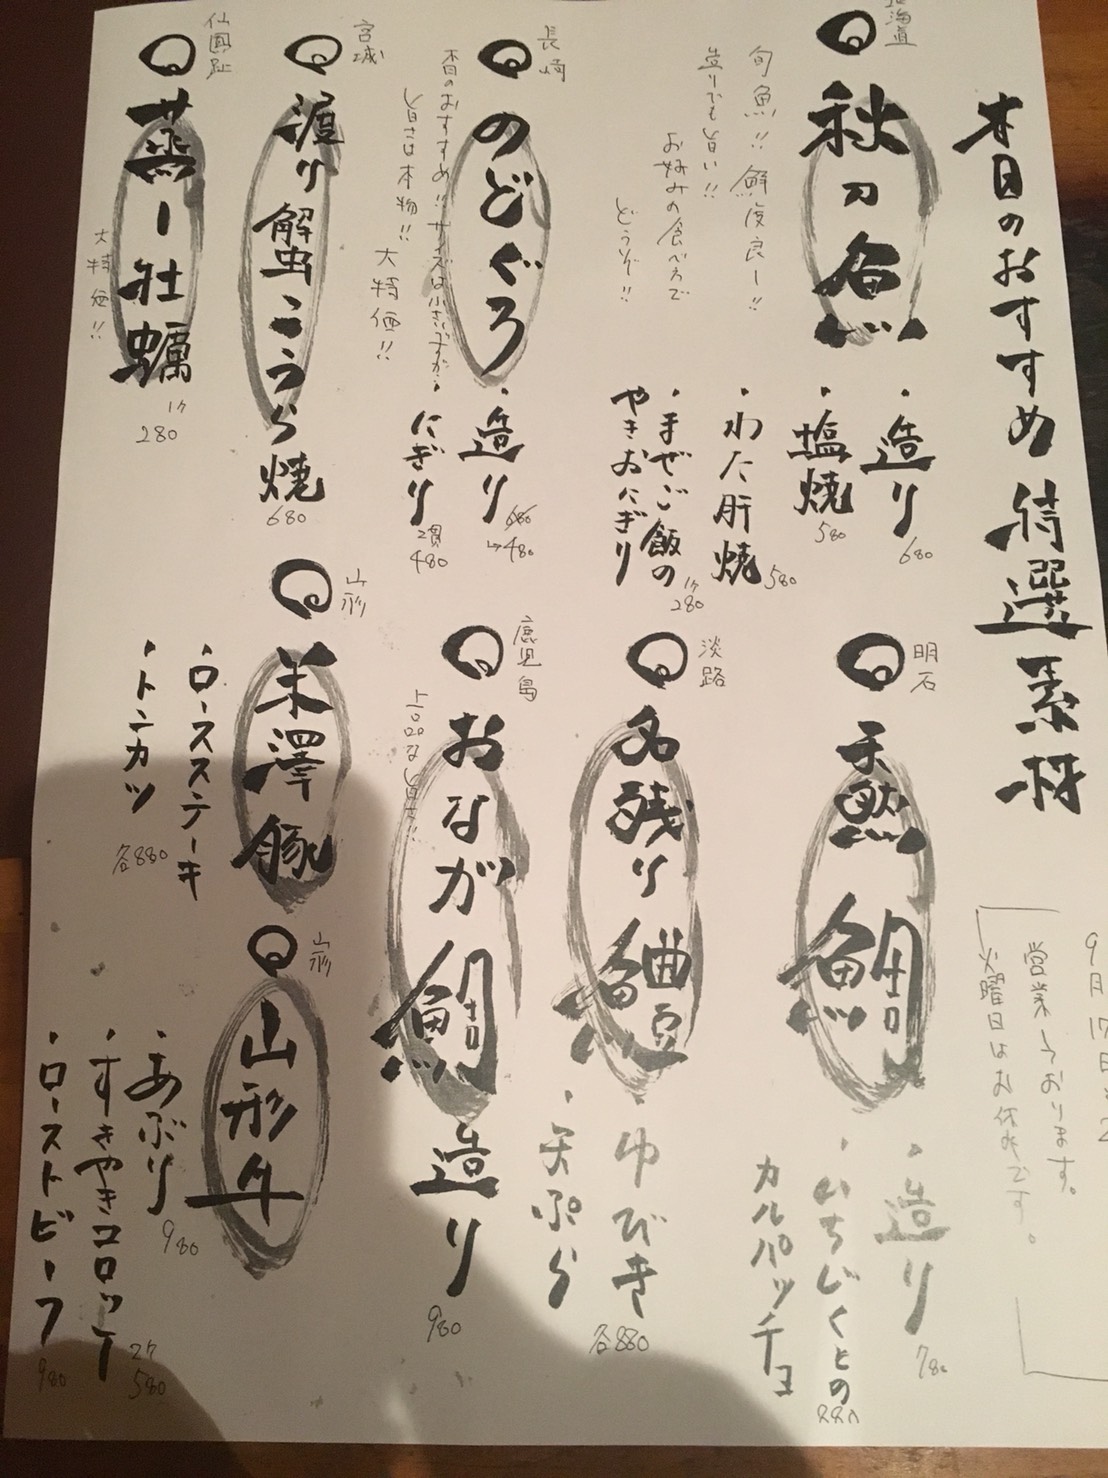 本日のおすすめ 特選素材
北海道
秋刀魚
旬魚!! 鮮度良し!!
造りでも旨い!!
お好みの食べ方で
どうぞ!!
・造り 680
・塩焼 580
・わた肝焼 580
・まぜご飯の
やきおにぎり 1ケ 280
長崎
のどぐろ
本日のおすすめ!! サイズは小さいですが・
旨さは本物!!
大特価!!
・造り 680→480
・にぎり 2貫 480
宮城
渡り蟹こうら焼
680
仙鳳趾
蒸し牡蠣
大特価!!
1ケ
280
9月17日
営業しております。
火曜日はお休みです。
明石
天然鯛
・造り 780
・いちじくとの
カルパッチョ 880
淡路
名残り鱧
・ゆびき
・天ぷら
各880
鹿児島
おなが鯛造り
上品な旨さ!!
980
山形
米澤豚
・ロースステーキ
・トンカツ
各880
山形
山形牛
・あぶり 980
・すきやきコロッケ 2ケ 580
・ローストビーフ 980